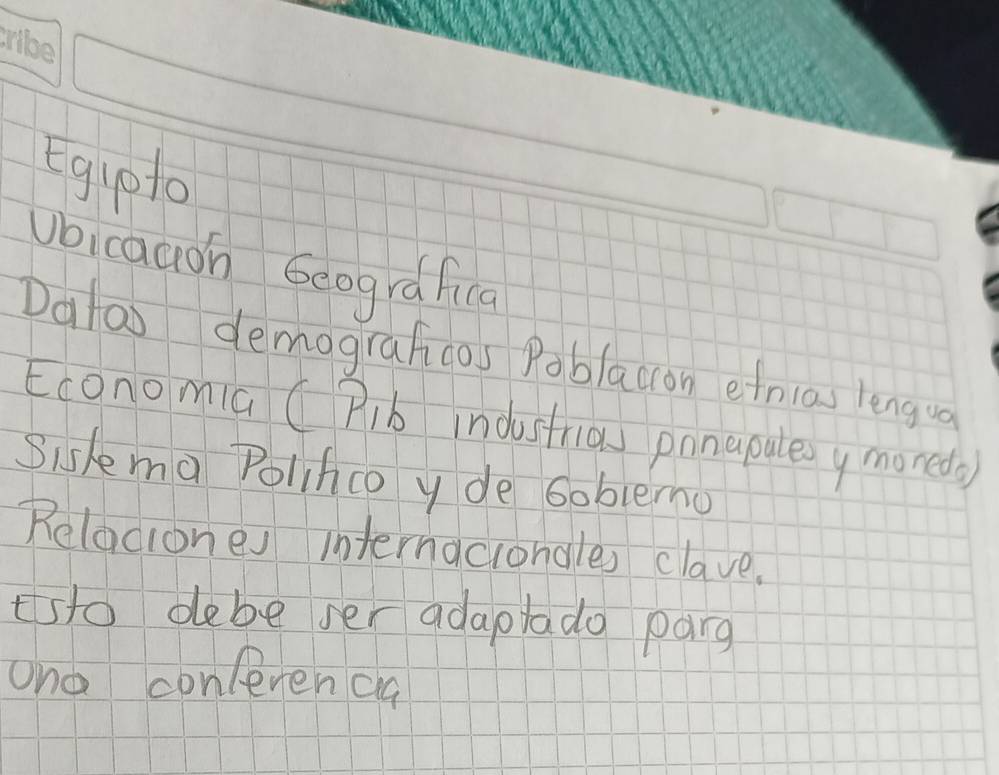 cribe
Egipto
Ubicación Geográfica
Datos demograficos Poblacion etnias lengua
Economia ( Pib industrias principales y moneda)
Sistema Politico y de Gobierno
Relaciones internacionales clave.
Esto debe ser adaptado para
una conferencia